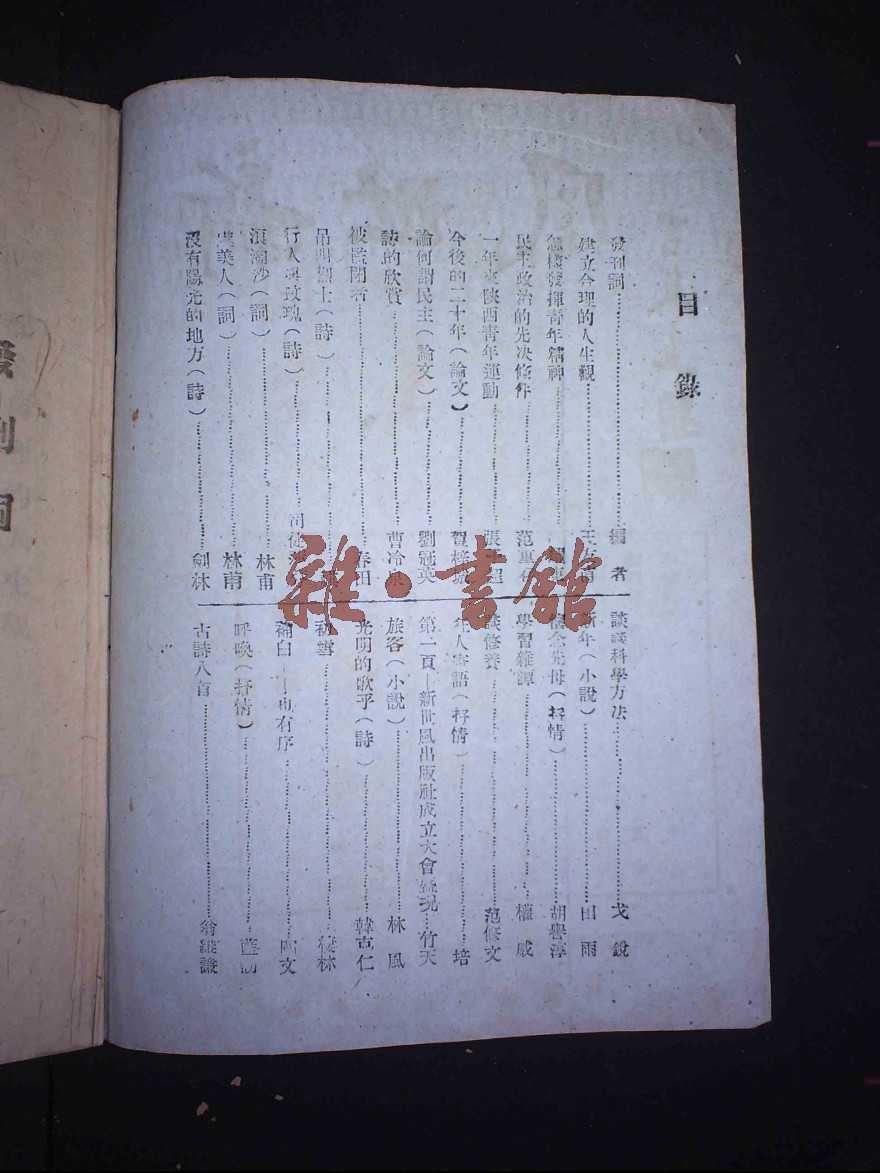 目錄
發刊詞 編者
建立合理的人生觀
怎樣發揮青年精神
民主政治的先决條件
一年來陝西青年運動
今後的二十年(論文)
論何謂民主(論文) 劉冠英
詩的欣賞 曹冷泉
被監閉者 春田
吊四烈士(詩)
行人與玫瑰(詩)
浪淘沙(詞) 林甫
虞美人(詞) 林甫
沒有陽光的地方(詩) 劍林
談談科學方法 戈銳
新年(小說) 田雨
念先母(抒情) 胡譽淳
學習雜譚 權威
修養 范修文
人寄語(抒情) 培
第一頁—新世風出版社成立大會 竹天
旅客(小說) 林風
光明的歌乎(詩) 韓克仁
初雪
補白——也有序
呼喚(抒情)
古詩八首 翁維謙
雜·書館
發刊詞